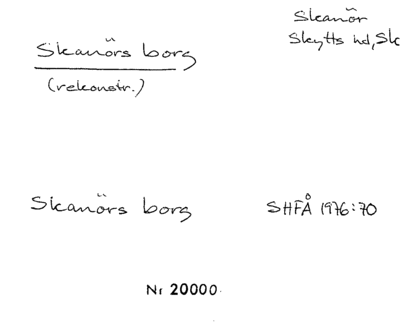 Skanör
Skytts hd, Sk
Skanörs borg
(rekonstr.)
Skanörs borg
SHFÅ 1976:70
Nr 20000